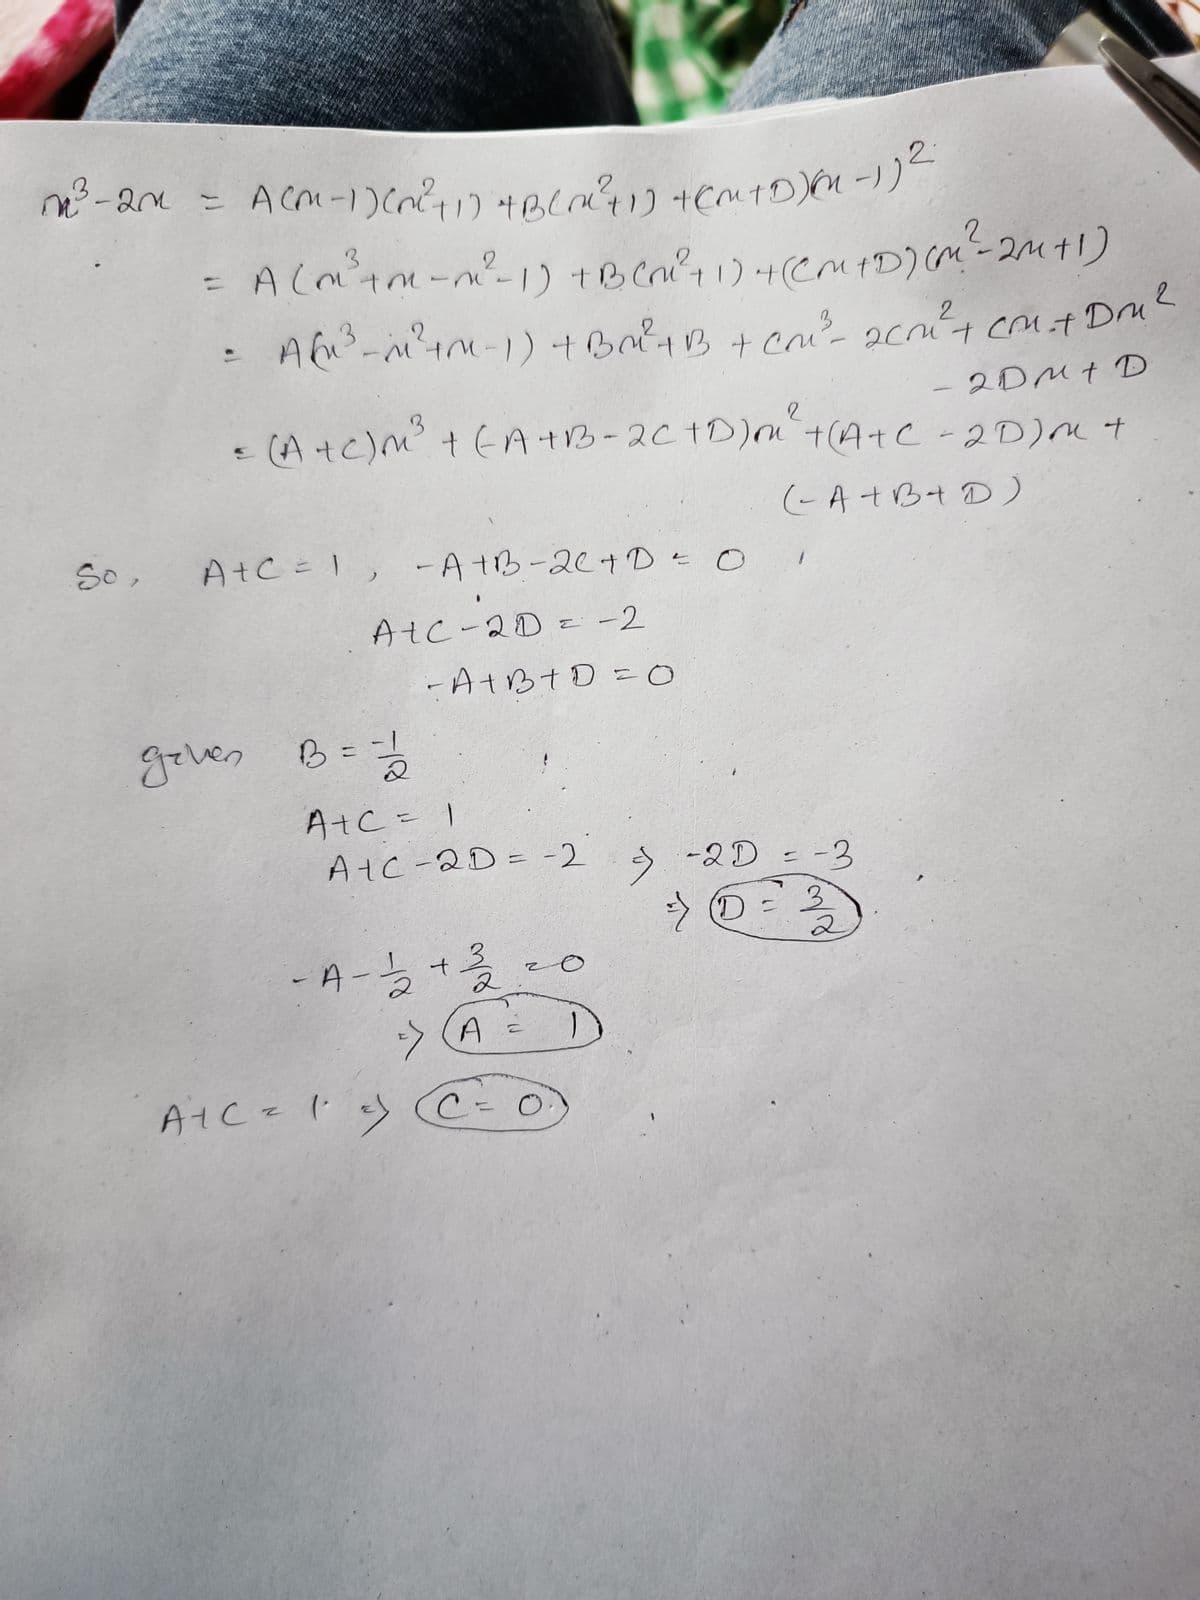 x³-2x = A(x-1)(x²+1) +B(x²+1) +(Cx+D)(x-1)²
= A(x³+x-x²-1) +B(x²+1) +(Cx+D)(x²-2x+1)
= A(x³-x²+x-1) +Bx²+B + Cx³- 2Cx²+ Cx + Dx²
- 2Dx + D
= (A+C)x³ + (-A+B-2C+D)x² +(A+C -2D)x +
(-A+B+D)
So, A+C = 1, -A+B-2C+D = 0
A+C-2D = -2
-A+B+D = 0
given B = -1/2
A+C = 1
A+C-2D = -2 ⇒ -2D = -3
⇒ D = 3/2
-A-1/2+3/2 = 0
⇒ A = 1
A+C = 1 ⇒ C = 0